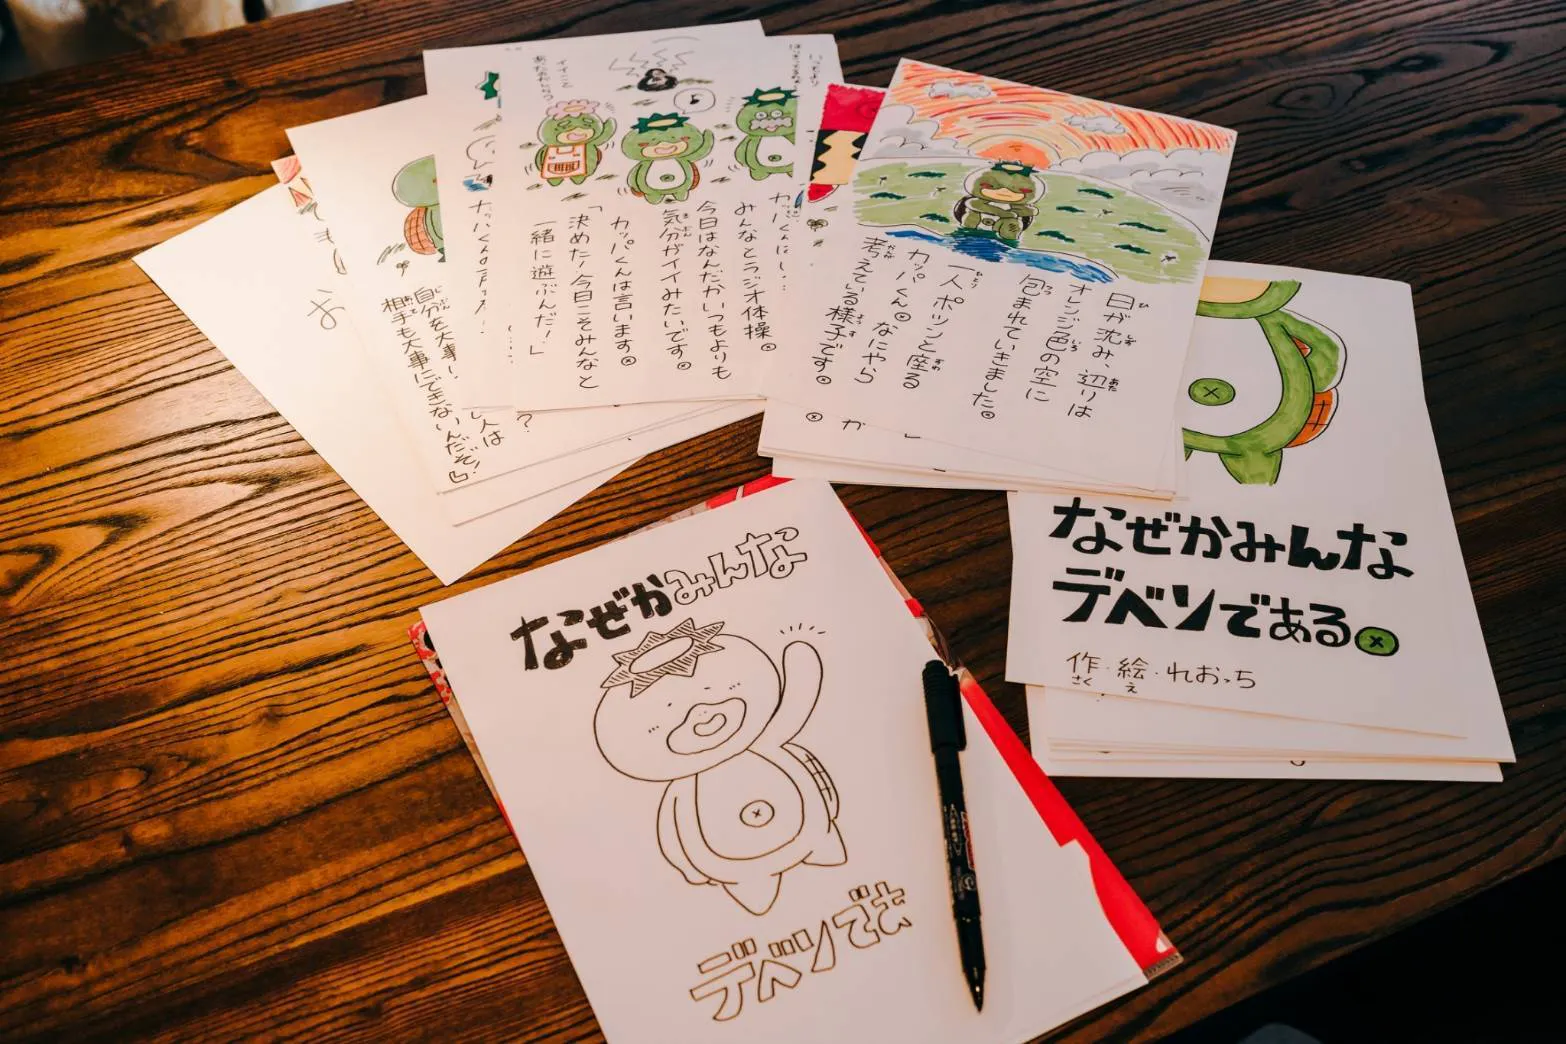 日が沈み、辺りは
オレンジ色の空に
包まれていきました。
一人ポツンと座る
カッパくん。なにやら
考えている様子です。
みんなとラジオ体操。
今日はなんだかいつもよりも
気分がイイみたいです。
カッパくんは言います。
「決めた！今日こそみんなと
一緒に遊ぶんだ！」
自分を大事に
人は
相手も大事にできないんだぞ！』
お
なぜかみんな
デベソである。
作・絵・れおっち
さく え
なぜかみんな
デベソでき